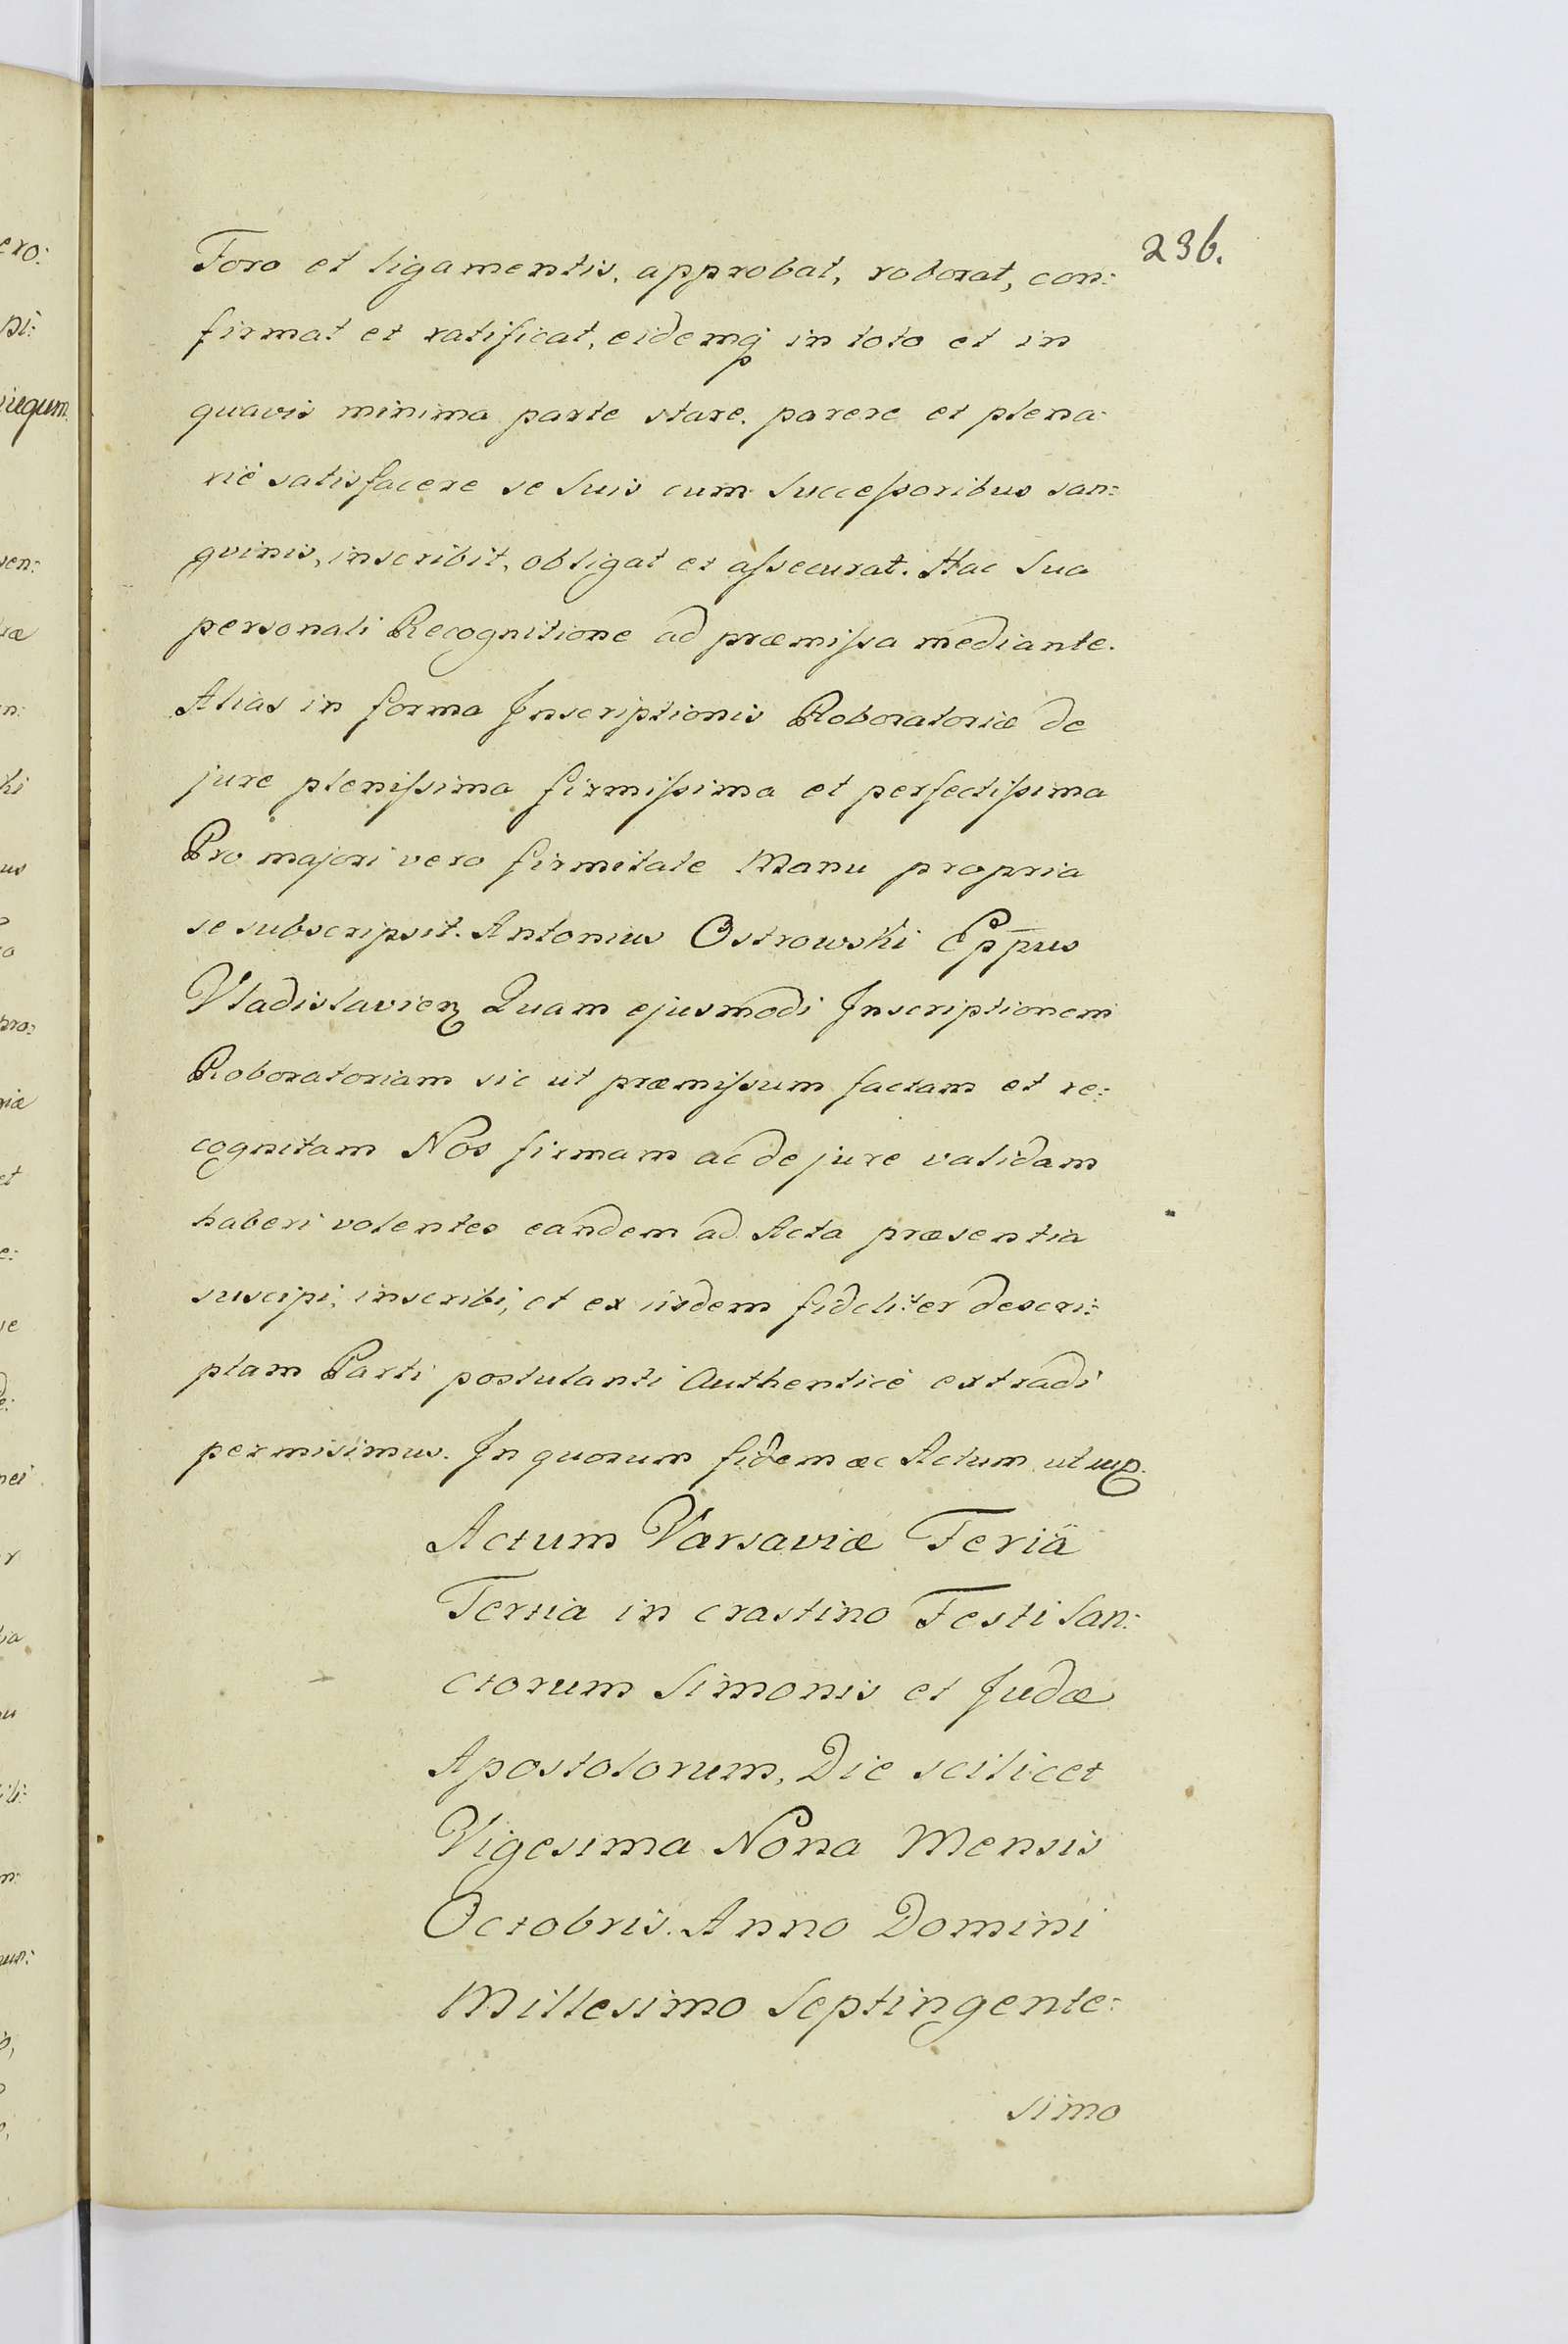 236.
Foro et ligamentis, approbat, roborat, con:
firmat et ratificat, eidemq in toto et in
quavis minima parte stare, parere et plena:
riè satisfacere se suis cum Succeſsoribus san:
gvinis, inscribit, obligat et aſsecurat. Hac Sua
personali Recognitione ad præmiſsa mediante.
Alias in forma Inscriptionis Roboratoriæ de
jure pleniſsima firmiſsima et perfectiſsima
Pro majori vero firmitate Manu propria
se subscripsit. Antonius Ostrowski Epp̄us
Vladislavien Quam ejusmodi Inscriptionem
Roboratoriam sic ut præmiſsum factam et re:
cognitam Nos firmam ac de jure validam
haberi volentes eandem ad Acta præsentia
suscipi, inscribi, et ex iisdem fideliter descri:
ptam Parti postulanti Authenticè extradi
permisimus. In quorum fidem ac Actum ut sup.
Actum Varsaviæ Feriä
Tertia in crastino Festi San:
ctorum Simonis et Judæ
Apostolorum, Die scilicet
Vigesima Nona Mensis
Octobris. Anno Domini
Millesimo Septingente:
simo